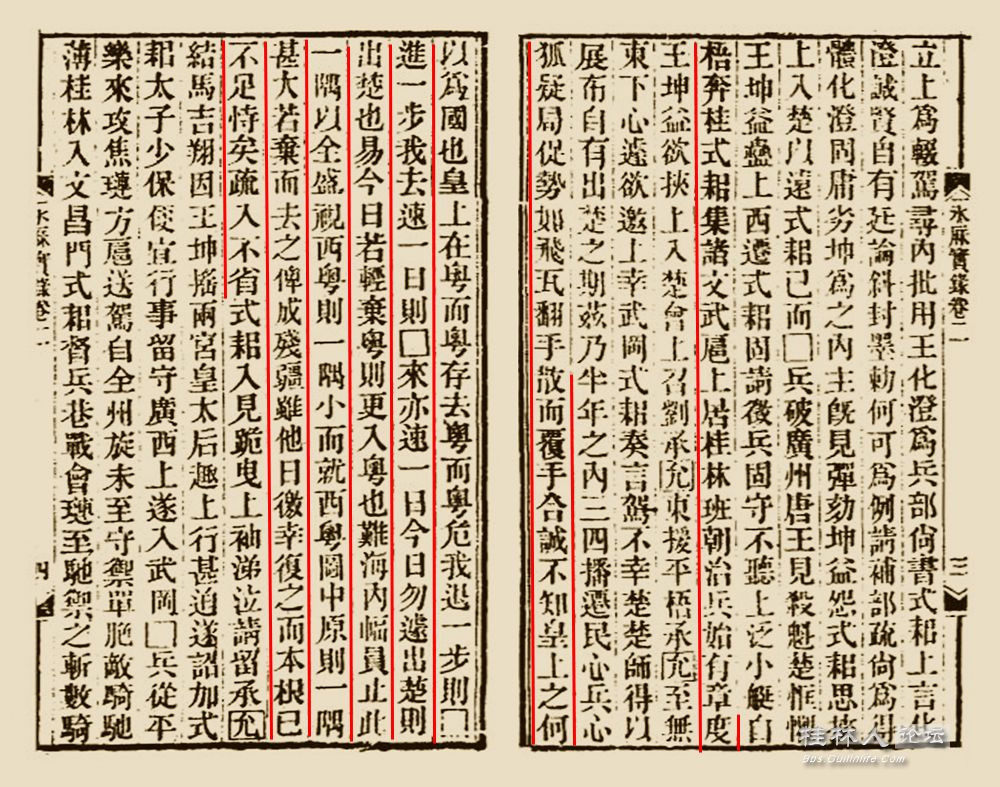 立上爲輟駕尋內批用王化澄爲兵部尙書式耜上言化
澄誠賢自有廷論斜封墨勅何可爲例請補部疏尙爲得
體化澄同庸劣坤爲之內主旣見彈劾坤益怨式耜思挾
上入楚以遠式耜已而□兵破廣州唐王見殺魁楚恇懼
王坤益蠱上西遷式耜固請徵兵固守不聽上泛小艇自
梧奔桂式耜集諸文武扈上居桂林班朝治兵始有章度
王坤益欲挾上入楚會上召劉承允東援平梧承允至無
東下心遽欲邀上幸武岡式耜奏言駕不幸楚楚師得以
展布自有出楚之期茲乃半年之內三四播遷民心兵心
狐疑局促勢如飛瓦翻手散而覆手合誠不知皇上之何
永厤實錄卷二
三
以爲國也皇上在粵而粵存去粵而粵危我退一步則□
進一步我去速一日則□來亦速一日今日勿遽出楚則
出楚也易今日若輕棄粵則更入粵也難海內幅員止此
一隅以全盛視西粵則一隅小而就西粵圖中原則一隅
甚大若棄而去之俾成殘疆雖他日徼幸復之而本根已
不足恃矣疏入不省式耜入見跪曳上袖涕泣請留承允
結馬吉翔因王坤搖兩宮皇太后趣上行甚迫遂詔加式
耜太子少保便宜行事留守廣西上遂入武岡□兵從平
樂來攻焦璉方扈送駕自全州旋未至守禦單脆敵騎馳
薄桂林入文昌門式耜督兵巷戰會璉至馳禦之斬數騎
永厤實錄卷二
四
桂林人论坛
Bbs.Guilinlife.Com